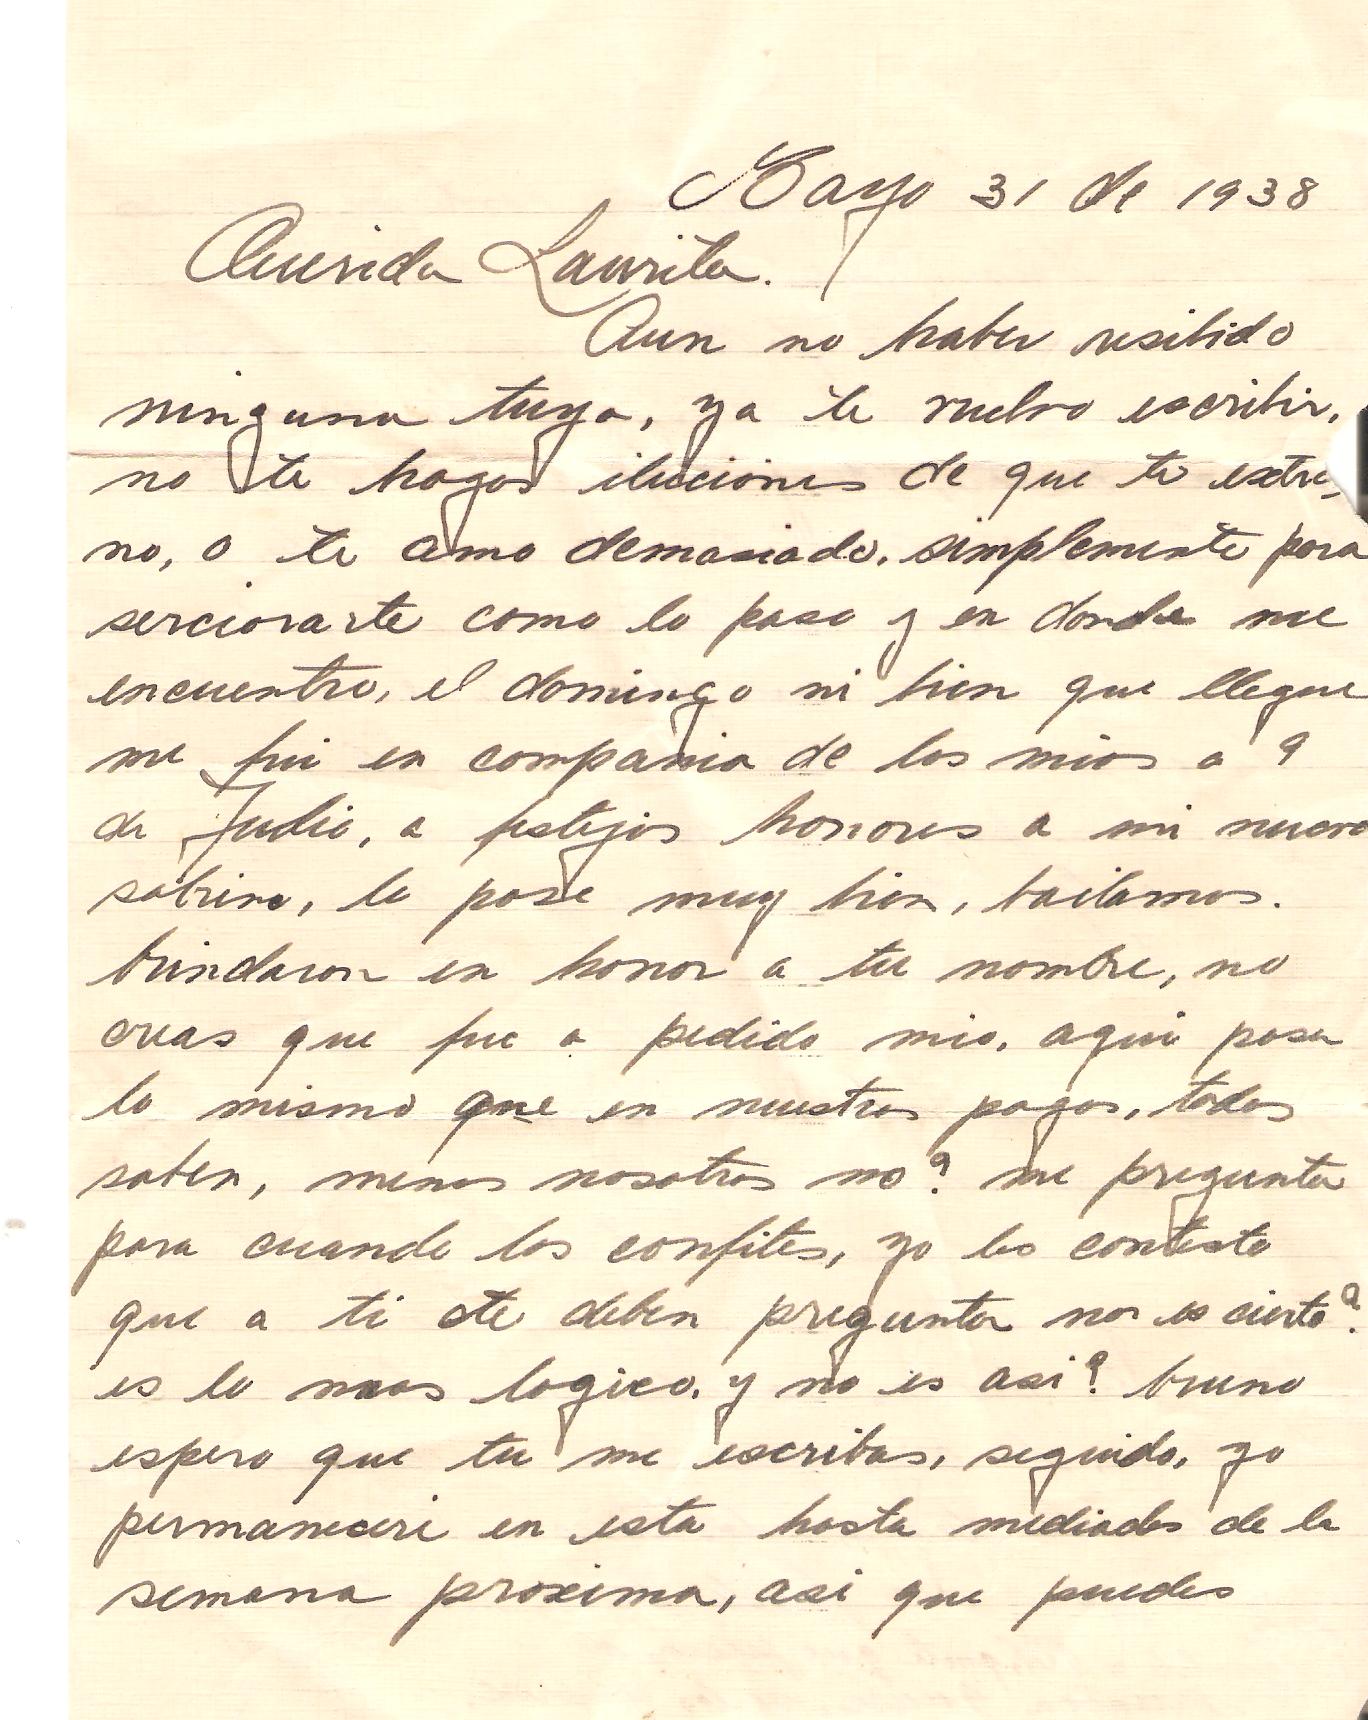 Mayo 31 de 1938
Querida Laurita.
Aun no haber resibido
ninguna tuya, ya te vuelvo escribir,
no te hagas iluciones de que te extra-
no, o te amo demasiado, simplemente para
serciorarte como lo paso y en donde me
encuentro, el domingo ni bien que llegue
me fui en compania de los mios a 9
de Julio, a festejos honores a mi nuevo
sobrino, lo pase muy bien, bailamos.
brindaron en honor a tu nombre, no
creas que fue a pedido mio, aqui pasa
lo mismo que en nuestros pagos, todos
saben, menos nosotros no? me pregunta
para cuando los confites, yo les contesto
que a ti te deben preguntar no es cierto?
es lo mas logico. y no es asi? bueno
espero que tu me escribas, seguido, yo
permanecere en esta hasta mediados de la
semana proxima, asi que puedes